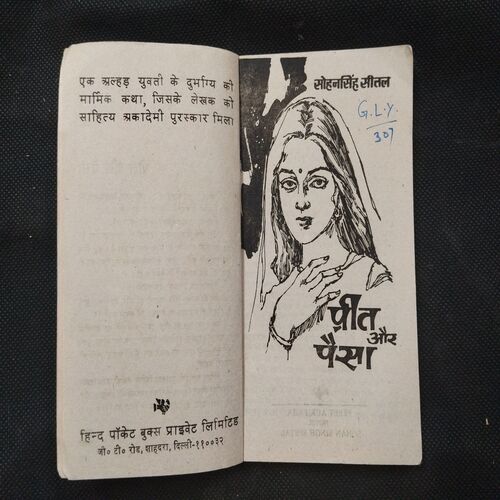 एक अल्हड़ युवती के दुर्भाग्य की
मार्मिक कथा, जिसके लेखक को
साहित्य अकादेमी पुरस्कार मिला
हिन्द पॉकेट बुक्स प्राइवेट लिमिटिड
जी० टी० रोड, शाहदरा, दिल्ली-११००३२
सोहनसिंह सीतल
G.L.Y.
307
प्रीत
और
पैसा